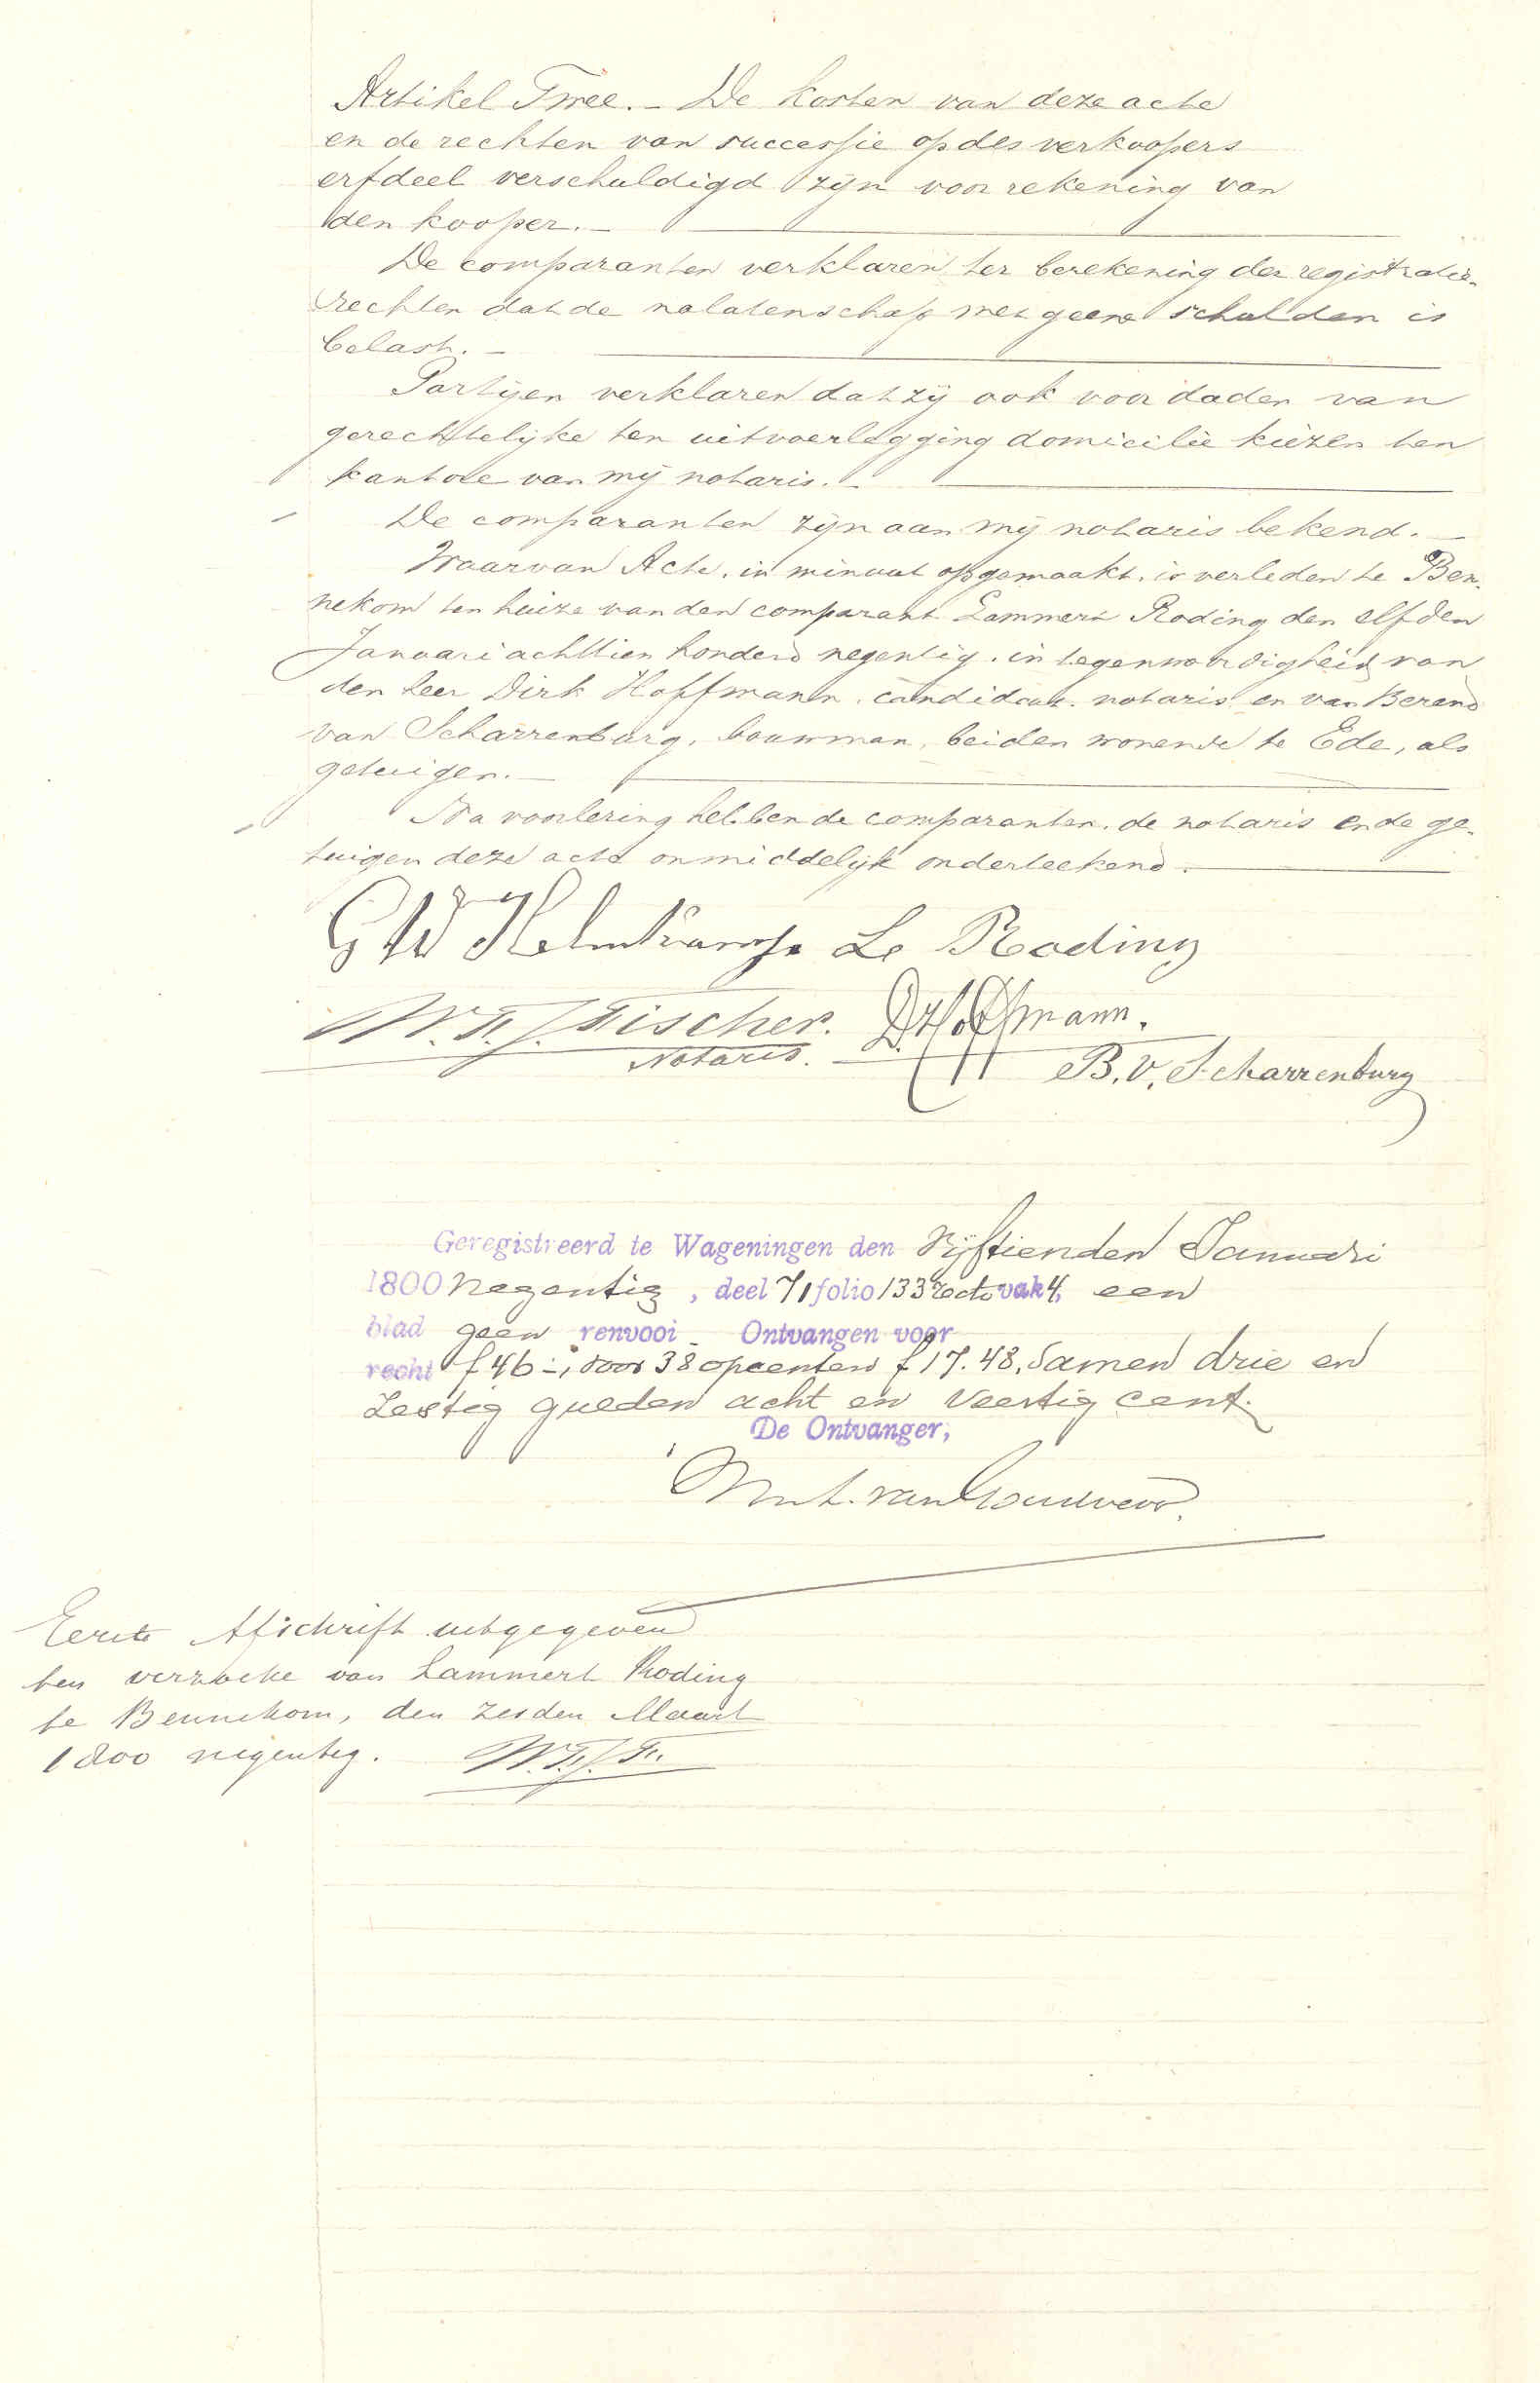 Artikel Twee. - De kosten van deze acte
en de rechten van successie op des verkoopers
erfdeel verschuldigd zijn voor rekening van
den kooper. -
De comparanten verklaren ter berekening der registratie-
rechten dat de nalatenschap met geene schulden is
belast. -
Partijen verklaren dat zij ook voor daden van
gerechtelijke ten uitvoerlegging domicilie kiezen ten
kantore van mij notaris. -
De comparanten zijn aan mij notaris bekend. -
Waarvan Acte, in minuut opgemaakt, is verleden te Ben-
nekom ten huize van den comparant Lammert Roding den elfden
Januari achttien honderd negentig, in tegenwoordigheid van
den heer Dirk Hoffmann, candidaat-notaris en van Berend
van Scharrenburg, bouwman, beiden wonende te Ede, als
getuigen. -
Na voorlezing hebben de comparanten, de notaris en de ge-
tuigen deze acte onmiddelijk onderteekend. -
G W Helmkamp. L Roding
W.F.J. Fischer. D. Hoffmann.
Notaris.
B. v. Scharrenburg
Geregistreerd te Wageningen den Vijftienden Januari
1800 negentig, deel 71 folio 133 recto vak 4, een
blad geen renvooi - Ontvangen voor
recht f 46 -, voor 38 opcenten f 17.48, Samen drie en
Zestig gulden acht en Veertig cent.
De Ontvanger,
van
Eerste Afschrift uitgegeven
ten verzoeke van Lammert Roding
te Bennekom, den zesden Maart
1800 negentig. W.F.J. F.